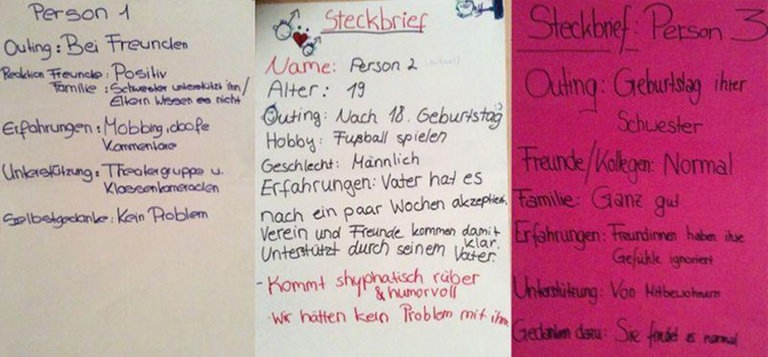 Person 1
Outing: Bei Freunden
Reaktion Freunde: Positiv
Familie: Schwester unterstützt ihn/
Eltern wissen es nicht
Erfahrungen: Mobbing, doofe
Kommentare
Unterstützung: Theatergruppe u.
Klassenkameraden
Selbstgedanke: Kein Problem
Steckbrief
Name: Person 2
Alter: 19
Outing: Nach 18. Geburtstag
Hobby: Fußball spielen
Geschlecht: Männlich
Erfahrungen: Vater hat es
nach ein paar Wochen akzeptiert.
Verein und Freunde kommen damit
klar.
Unterstützt durch seinem Vater.
- Kommt shyphatisch rüber
& humorvoll
- Wir hätten kein Problem mit ihm
Steckbrief: Person 3
Outing: Geburtstag ihrer
Schwester
Freunde/Kollegen: Normal
Familie: Ganz gut
Erfahrungen: Freundinnen haben ihre
Gefühle ignoriert
Unterstützung: Von Mitbewohnern
Gedanken dazu: Sie findet es normal